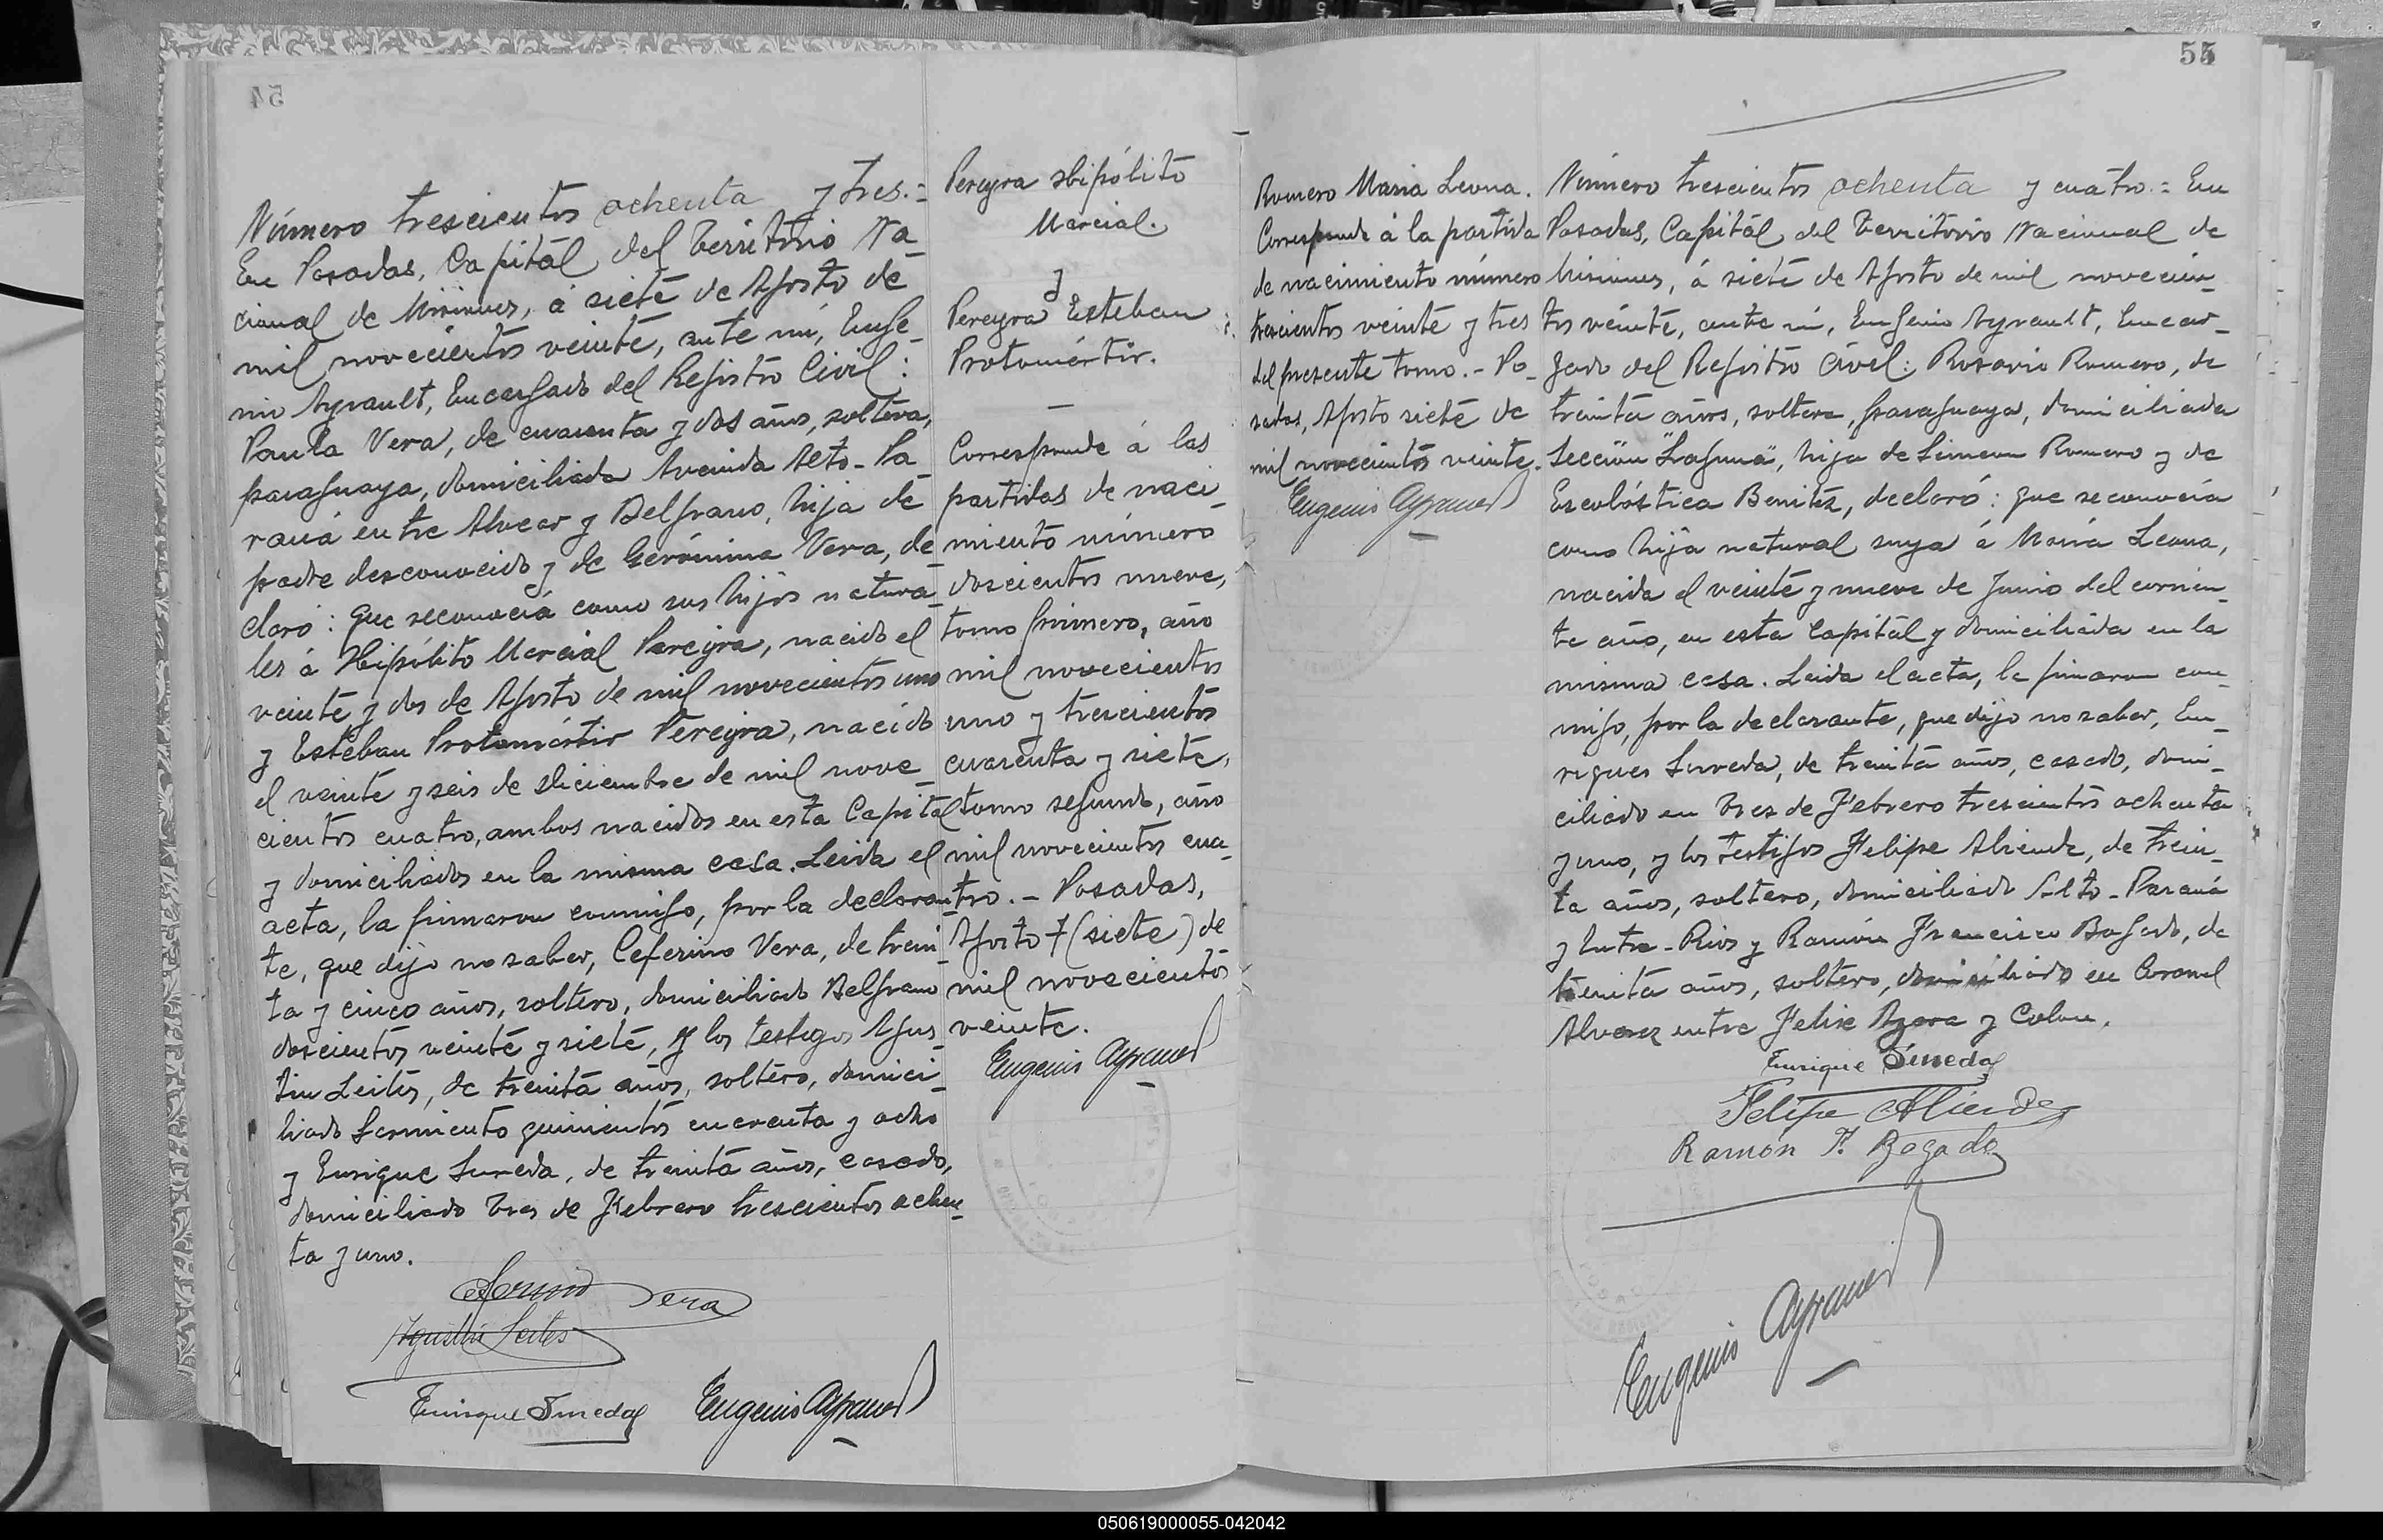 54
Número trescientos ochenta y tres.=
En Posadas, Capital del Territorio Na-
cional de Misiones, á siete de Agosto de
mil novecientos veinte, ante mí, Euge-
nio Ayrault, Encargado del Registro Civil:
Paula Vera, de cuarenta y dos años, soltera,
paraguaya, domiciliada Avenida Alto-Pa-
raná entre Alvear y Belgrano, hija de
padre desconocido y de Gerónima Vera, de-
claró: que reconocía como sus hijos natura-
les á Hipólito Marcial Pereyra, nacido el
veinte y dos de Agosto de mil novecientos uno
y Esteban Protomártir Pereyra, nacido
el veinte y seis de Diciembre de mil nove-
cientos cuatro, ambos nacidos en esta Capital
y domiciliados en la misma casa. Leida el
acta, la firmaron conmigo, por la declaran-
te, que dijo no saber, Ceferino Vera, de trein-
ta y cinco años, soltero, domiciliado Belgrano
doscientos veinte y siete, y los testigos Agus-
tin Leites, de treinta años, soltero, domici-
liado Sarmiento quinientos cuarenta y ocho
y Enrique Sureda, de treinta años, casado,
domiciliado Tres de Febrero trescientos ochen-
ta y uno.
Vera
Agustin Leites
Enrique Sureda
Eugenio Ayrault
Pereyra Hipólito
Marcial.
y
Pereyra Esteban
Protomártir.
Corresponde á las
partidas de naci-
miento número
doscientos nueve,
tomo primero, año
mil novecientos
uno y trescientos
cuarenta y siete,
tomo segundo, año
mil novecientos cua-
tro.- Posadas,
Agosto 7 (siete) de
mil novecientos
veinte.
Eugenio Ayrault
55
Romero Maria Leona.
Corresponde á la partida
de nacimiento número
trescientos veinte y tres
del presente tomo.- Po-
sadas, Agosto siete de
mil novecientos veinte.
Eugenio Ayrault
Número trescientos ochenta y cuatro.= En
Posadas, Capital del Territorio Nacional de
Misiones, á siete de Agosto de mil novecien-
tos veinte, ante mí, Eugenio Ayrault, Encar-
gado del Registro Civil: Rosario Romero, de
treinta años, soltera, paraguaya, domiciliada
Sección "Laguna", hija de Simeon Romero y de
Escolástica Benitez, declaró: que reconocía
como hija natural suya á María Leona,
nacida el veinte y nueve de Junio del corrien-
te año, en esta Capital y domiciliada en la
misma casa. Leida el acta, la firmaron con-
migo, por la declarante, que dijo no saber, En-
rique Sureda, de treinta años, casado, domi-
ciliado en Tres de Febrero trescientos ochenta
y uno, y los testigos Felipe Aliende, de trein-
ta años, soltero, domiciliado Alto-Paraná
y Entre-Rios y Ramón Francisco Bogado, de
treinta años, soltero, domiciliado en Coronel
Alvarez entre Felix Azara y Colon.
Enrique Sureda
Felipe Aliende
Ramón F. Bogado
Eugenio Ayrault
050619000055-042042